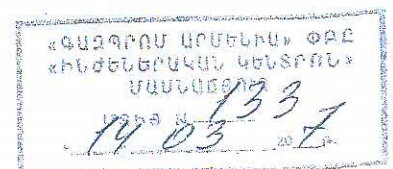 «ԳԱԶՊՐՈՄ ԱՐՄԵՆԻԱ» ՓԲԸ
«ԻՆԺԵՆԵՐԱԿԱՆ ԿԵՆՏՐՈՆ»
ՄԱՍՆԱՃՅՈՒՂ
N 133
03 20 թ.